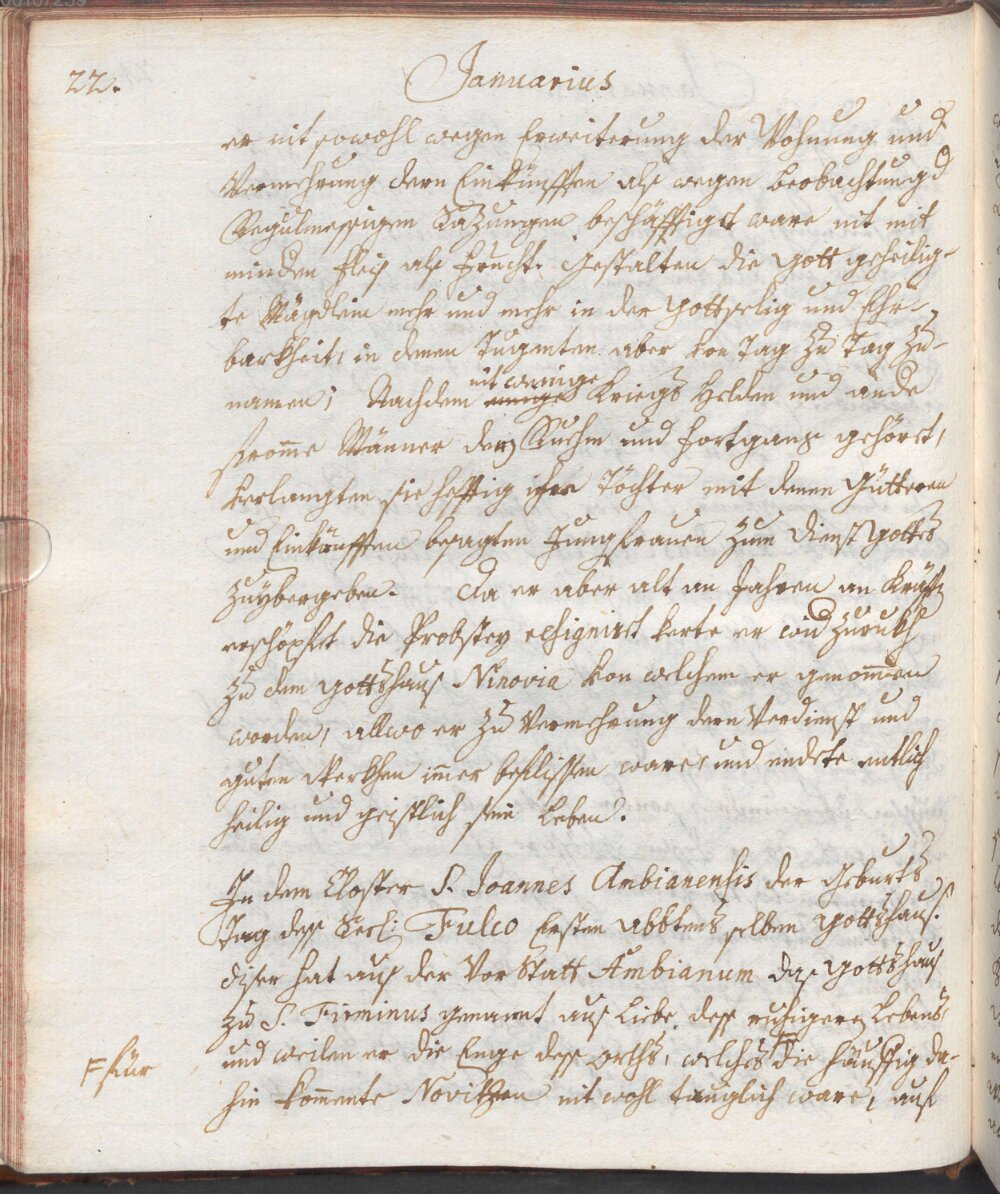 22. Januarius
er nit sowohl wegen Erweiterung der Wohnung und
Vermehrung dern Einkünfften als wegen beobachtung d
Regulmessigen Sazungen beschäfftigt ware nit mit
mindern fleis als frucht. Gestalten die Gott geheilig-
te Mägdlein mehr und mehr in der Gottselig und Ehr-
barkheit, in denen Tugenten aber von Tag zu Tag zu-
namen; Nachdem nit weninge Kriegs Helden und ande
fromme Männer dern Ruehm und fortgang gehöret,
verlangten sie hefftig ihre Töchter mit denen Gütteren
und Einkünfften besagten Jungfrauen zum Dienst Gottes
zuybergeben. Da er aber alt an Jahren an Kräft
erschöpfet die Probstey resigniret kerte er wid zurukh
zu dem Gottshaus Ninovia von welchem er genommen
worden, allwo er zu Vermehrung dern Verdienst und
guten Werkhen immer beflissen ware, und endete entlich
heilig und geistlich sein Leben.
In dem Closter S. Joannes Ambianensis der Geburts
Tag dess Seel: Fulco Ersten Abbtens selben Gottshaus.
diser hat aus der Vor Statt Ambianum das Gottshaus
zu S. Firminus genannt aus Liebe dess ruhigeren Lebens,
und weilen er die Enge dess orths, welches F die häuffig da-
F für
hin kommente Novitzen nit wohl tauglich ware, aus